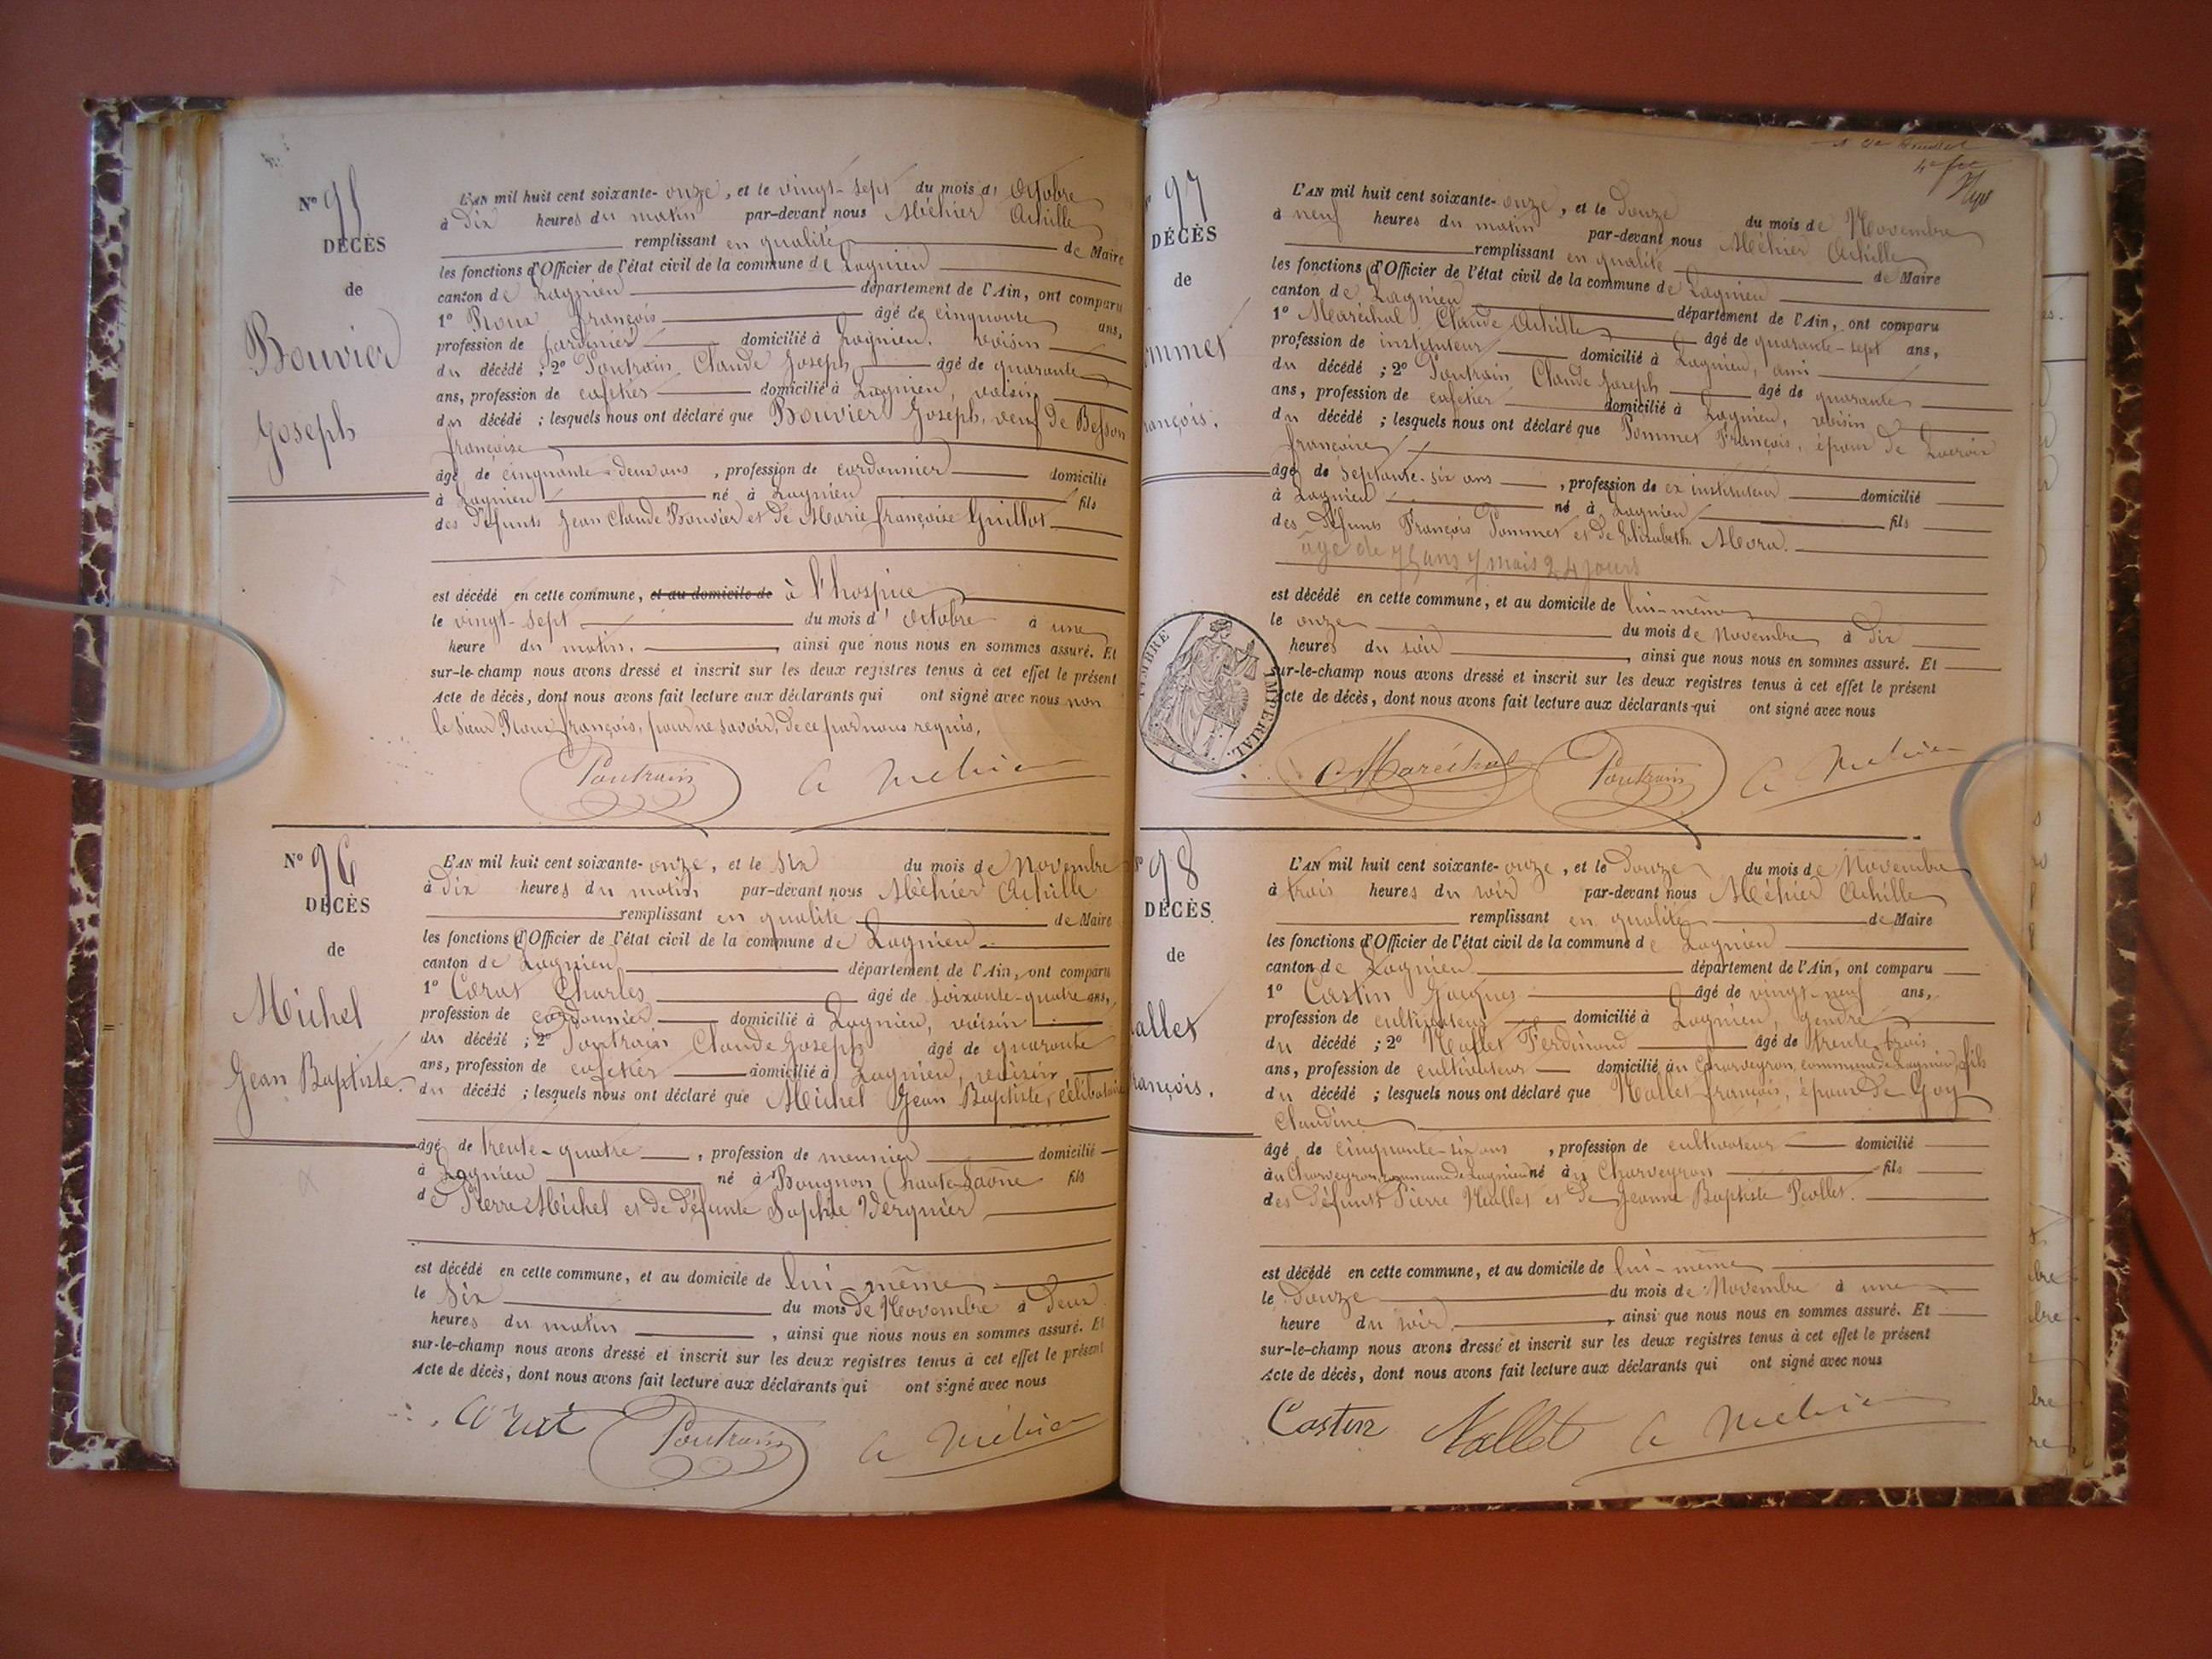 N° 95
DÉCÈS
de
Bouvier
Joseph
L'AN mil huit cent soixante-onze, et le vingt-sept du mois d'Octobre
à dix heures du matin par-devant nous Méhier Achille
remplissant en qualité de Maire
les fonctions d'Officier de l'état civil de la commune de Lagnieu
canton de Lagnieu département de l'Ain, ont comparu
1° Roux françois âgé de cinquante ans,
profession de jardinier domicilié à Lagnieu, voisin
du décédé ; 2° Poutrain Claude Joseph âgé de quarante
ans, profession de cafetier domicilié à Lagnieu, voisin
du décédé ; lesquels nous ont déclaré que Bouvier Joseph, veuf de Besson
françoise
âgé de cinquante-deux ans, profession de cordonnier domicilié
à Lagnieu né à Lagnieu fils
des défunts Jean Claude Bouvier et de Marie françoise Guillot
est décédé en cette commune, et au domicile de à l'hospice
le vingt-sept du mois d'Octobre à une
heure du matin, ainsi que nous nous en sommes assuré. Et
sur-le-champ nous avons dressé et inscrit sur les deux registres tenus à cet effet le présent
Acte de décès, dont nous avons fait lecture aux déclarants qui ont signé avec nous non
le sieur Roux françois, pour ne savoir, de ce par nous requis.
Poutrain A Méhier
N° 96
DÉCÈS
de
Michel
Jean Baptiste.
L'AN mil huit cent soixante-onze, et le six du mois de Novembre
à dix heures du matin par-devant nous Méhier Achille
remplissant en qualité de Maire
les fonctions d'Officier de l'état civil de la commune de Lagnieu
canton de Lagnieu département de l'Ain, ont comparu
1° Charles âgé de soixante-quatre ans,
profession de cordonnier domicilié à Lagnieu, voisin
du décédé ; 2° Poutrain Claude Joseph âgé de quarante
ans, profession de cafetier domicilié à Lagnieu, voisin
du décédé ; lesquels nous ont déclaré que Michel Jean Baptiste, célibataire
âgé de trente-quatre, profession de meunier domicilié
à Lagnieu né à Bougnon (haute-Saône fils
de Pierre Michel et de défunte Sophie Vergnier
est décédé en cette commune, et au domicile de lui-même
le Six du mois de Novembre à deux
heures du matin, ainsi que nous nous en sommes assuré. Et
sur-le-champ nous avons dressé et inscrit sur les deux registres tenus à cet effet le présent
Acte de décès, dont nous avons fait lecture aux déclarants qui ont signé avec nous
Poutrain A Méhier
97
DÉCÈS
de
ommet
rançois.
L'AN mil huit cent soixante-onze, et le douze du mois de Novembre
à neuf heures du matin par-devant nous Méhier Achille
remplissant en qualité de Maire
les fonctions d'Officier de l'état civil de la commune de Lagnieu
canton de Lagnieu département de l'Ain, ont comparu
1° Maréchal Claude Achille âgé de quarante-sept ans,
profession de instituteur domicilié à Lagnieu, ami
du décédé ; 2° Poutrain Claude Joseph âgé de quarante
ans, profession de cafetier domicilié à Lagnieu, voisin
du décédé ; lesquels nous ont déclaré que Pommet François, époux de Lacroix
françoise
âgé de septante-six ans, profession de ex instituteur domicilié
à Lagnieu né à Lagnieu fils
des défunts François Pommet et de Elizabeth Mora.
âgé de 75 ans 7 mois 24 jours
est décédé en cette commune, et au domicile de lui-même
le onze du mois de Novembre à dix
heures du soir, ainsi que nous nous en sommes assuré. Et
sur-le-champ nous avons dressé et inscrit sur les deux registres tenus à cet effet le présent
Acte de décès, dont nous avons fait lecture aux déclarants qui ont signé avec nous
TIMBRE IMPERIAL
Maréchal Poutrain A Méhier
98
DÉCÈS
de
allet
rançois.
L'AN mil huit cent soixante-onze, et le douze du mois de Novembre
à trois heures du soir par-devant nous Méhier Achille
remplissant en qualité de Maire
les fonctions d'Officier de l'état civil de la commune de Lagnieu
canton de Lagnieu département de l'Ain, ont comparu
1° Castin Jacques âgé de vingt-neuf ans,
profession de cultivateur domicilié à Lagnieu, gendre
du décédé ; 2° Nallet Ferdinand âgé de trente trois
ans, profession de cultivateur domicilié au Charveyron, commune de Lagnieu, fils
du décédé ; lesquels nous ont déclaré que Nallet françois, époux de Goy
Claudine
âgé de cinquante-six ans, profession de cultivateur domicilié
au Charveyron, commune de Lagnieu né au Charveyron fils
des défunts Pierre Nallet et de Jeanne Baptiste Peollet.
est décédé en cette commune, et au domicile de lui-même
le Douze du mois de Novembre à une
heure du soir, ainsi que nous nous en sommes assuré. Et
sur-le-champ nous avons dressé et inscrit sur les deux registres tenus à cet effet le présent
Acte de décès, dont nous avons fait lecture aux déclarants qui ont signé avec nous
Castin Nallet A Méhier